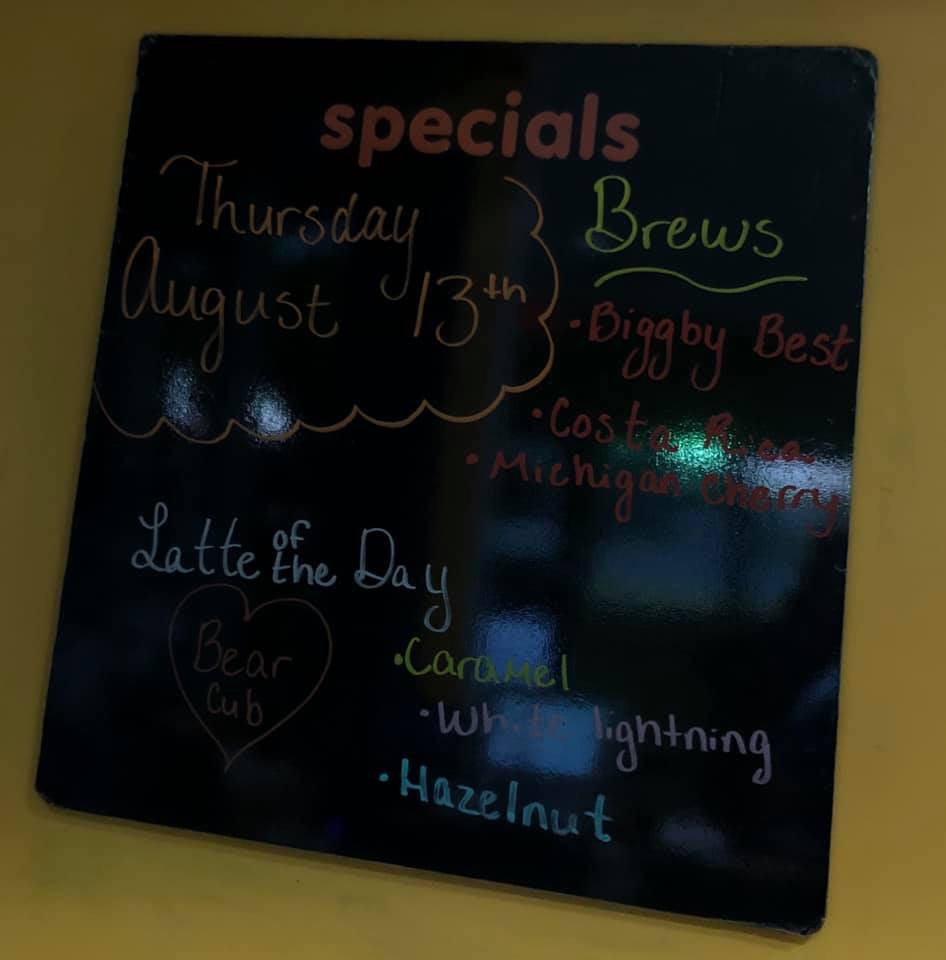 specials
Thursday
August 13th
Brews
•Biggby Best
•Costa Rica
•Michigan Cherry
Latte of the Day
Bear
Cub
•Caramel
•White lightning
•Hazelnut